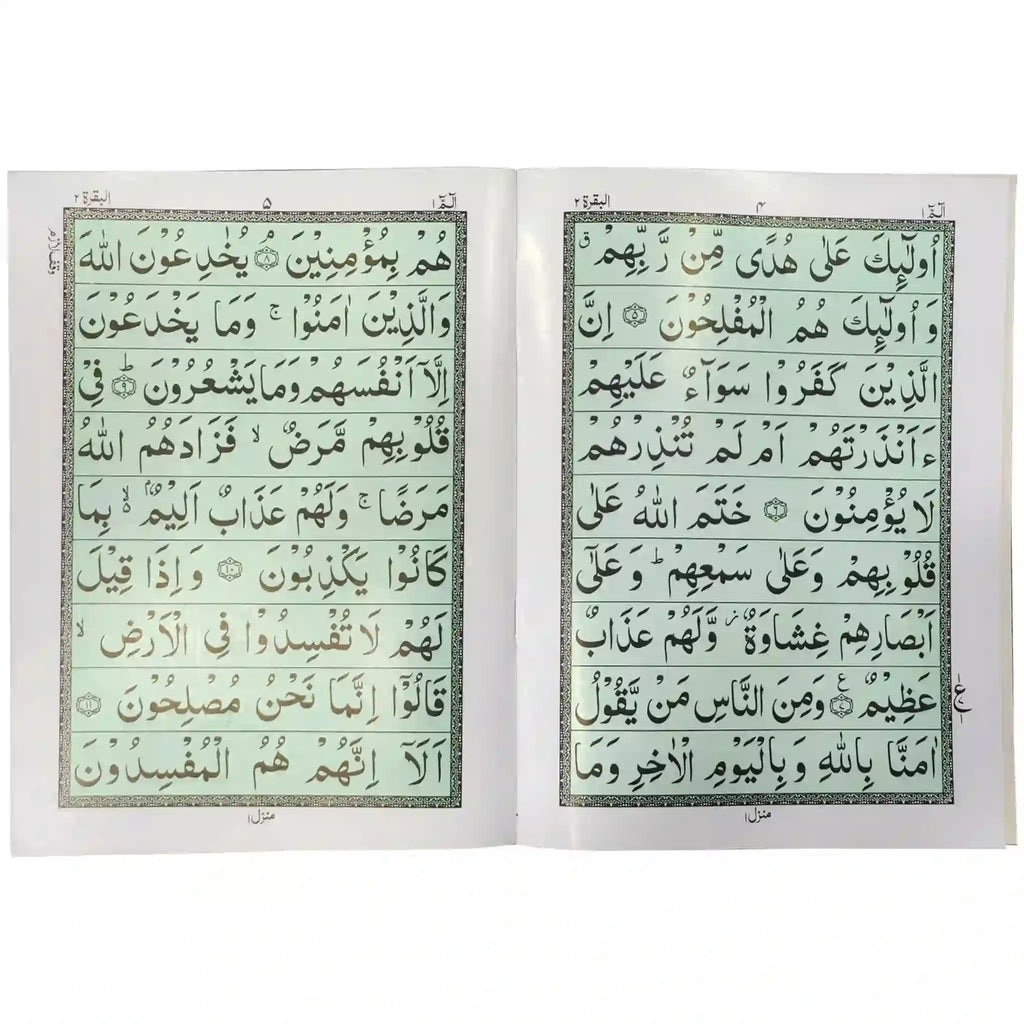 الٓمّٓ ١
۴
البقرة ٢
اُولٰٓئِكَ عَلٰى هُدًى مِّنْ رَّبِّهِمْ ۗ
وَ اُولٰٓئِكَ هُمُ الْمُفْلِحُوْنَ ۝۵ اِنَّ
الَّذِيْنَ كَفَرُوْا سَوَآءٌ عَلَيْهِمْ
ءَاَنْذَرْتَهُمْ اَمْ لَمْ تُنْذِرْهُمْ
لَا يُؤْمِنُوْنَ ۝۶ خَتَمَ اللّٰهُ عَلٰى
قُلُوْبِهِمْ وَعَلٰى سَمْعِهِمْ ؕ وَ عَلٰٓى
اَبْصَارِهِمْ غِشَاوَةٌ ؗ وَّلَهُمْ عَذَابٌ
عَظِيْمٌ ۝۷ ع وَمِنَ النَّاسِ مَنْ يَّقُوْلُ
اٰمَنَّا بِاللّٰهِ وَ بِالْيَوْمِ الْاٰخِرِ وَمَا
منزل ١
١
ع
٧
١
الٓمّٓ ١
۵
البقرة ٢
وقف لازم
هُمْ بِمُؤْمِنِيْنَ ۝۸ۘ يُخٰدِعُوْنَ اللّٰهَ
وَالَّذِيْنَ اٰمَنُوْا ۚ وَمَا يَخْدَعُوْنَ
اِلَّاۤ اَنْفُسَهُمْ وَمَا يَشْعُرُوْنَ ۝۹ؕ فِيْ
قُلُوْبِهِمْ مَّرَضٌ ۙ فَزَادَهُمُ اللّٰهُ
مَرَضًا ۚ وَلَهُمْ عَذَابٌ اَلِيْمٌۢ ۙ۬ بِمَا
كَانُوْا يَكْذِبُوْنَ ۝۱۰ وَ اِذَا قِيْلَ
لَهُمْ لَا تُفْسِدُوْا فِي الْاَرْضِ ۙ
قَالُوْۤا اِنَّمَا نَحْنُ مُصْلِحُوْنَ ۝۱۱
اَلَاۤ اِنَّهُمْ هُمُ الْمُفْسِدُوْنَ
منزل ١